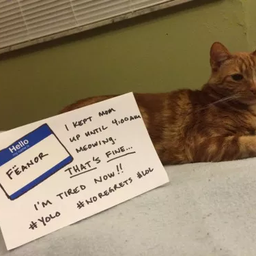 Hello
FËANOR
I KEPT MOM
UP UNTIL 4:00AM
MEOWING.
THAT'S FINE...
I'M TIRED NOW!!
#YOLO #NOREGRETS #LOL